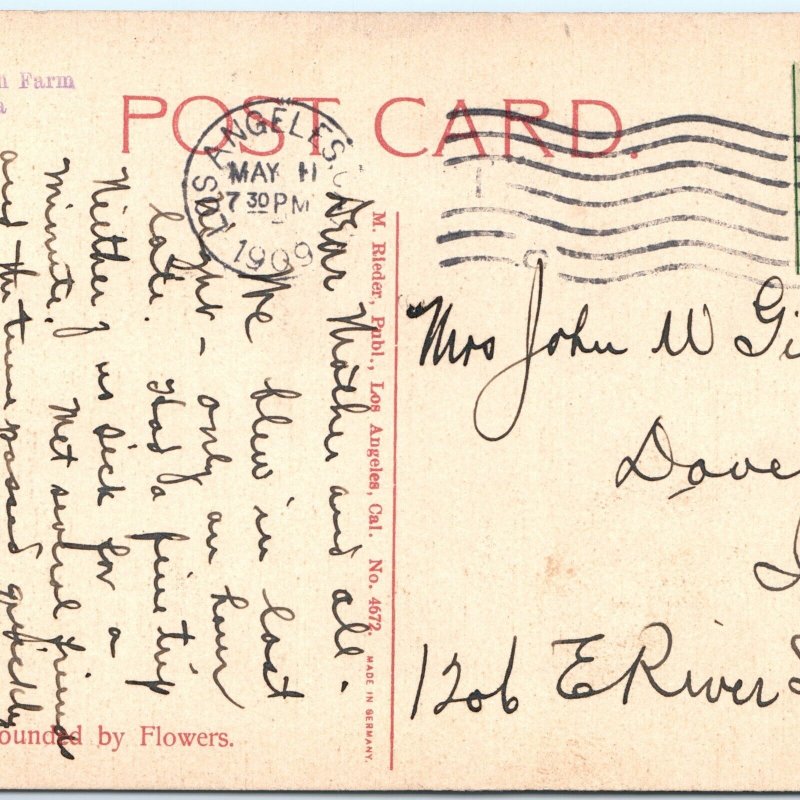 n Farm
a
POST CARD.
LOS ANGELES, C
MAY 11
7 30 PM
1909
Dear Mother and all.
We blew in last
night – only an hour
late. Had a fine trip
Neither of us sick for a
minute. Met several friends
and the time passed quickly
M. Rieder, Publ., Los Angeles, Cal. No. 4672.
MADE IN GERMANY.
Mrs John W Gi
Dave
1206 E River S
ounded by Flowers.